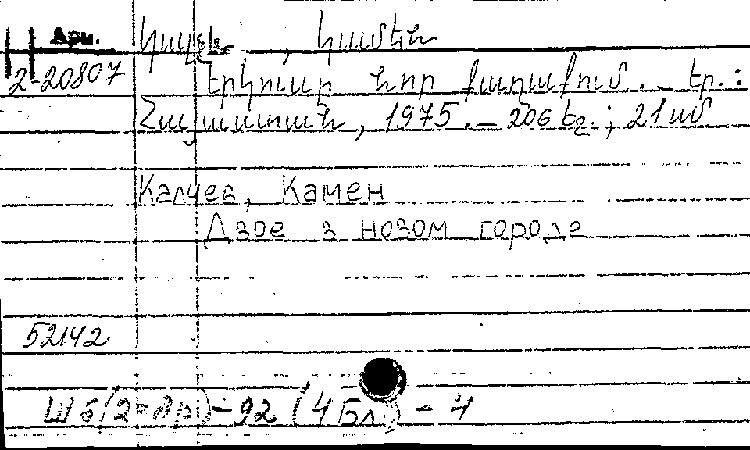 Арм.
Կալչև, Կամեն
2-20807
Երկուսը նոր քաղաքում. – Եր.:
Հայաստան, 1975. – 206 էջ.; 21 սմ
Калчев, Камен
Двое в новом городе
52142
Ш б(2=Ар)-92 (4Бл) - 4